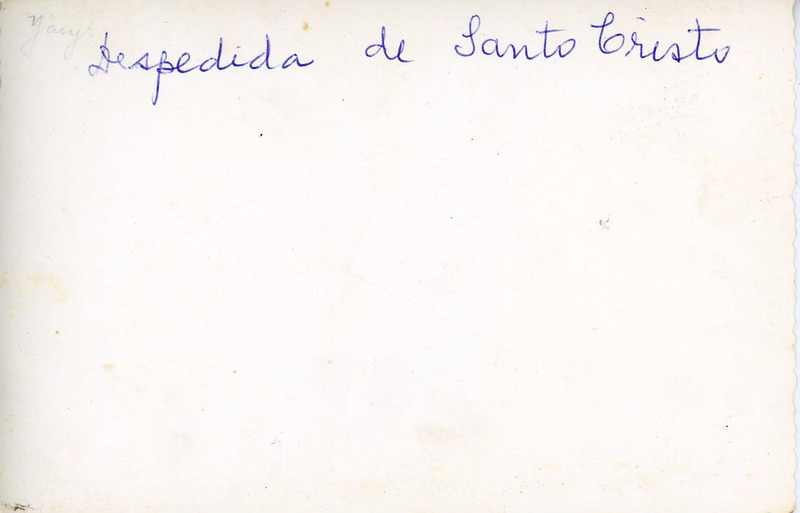 Despedida de Santo Cristo